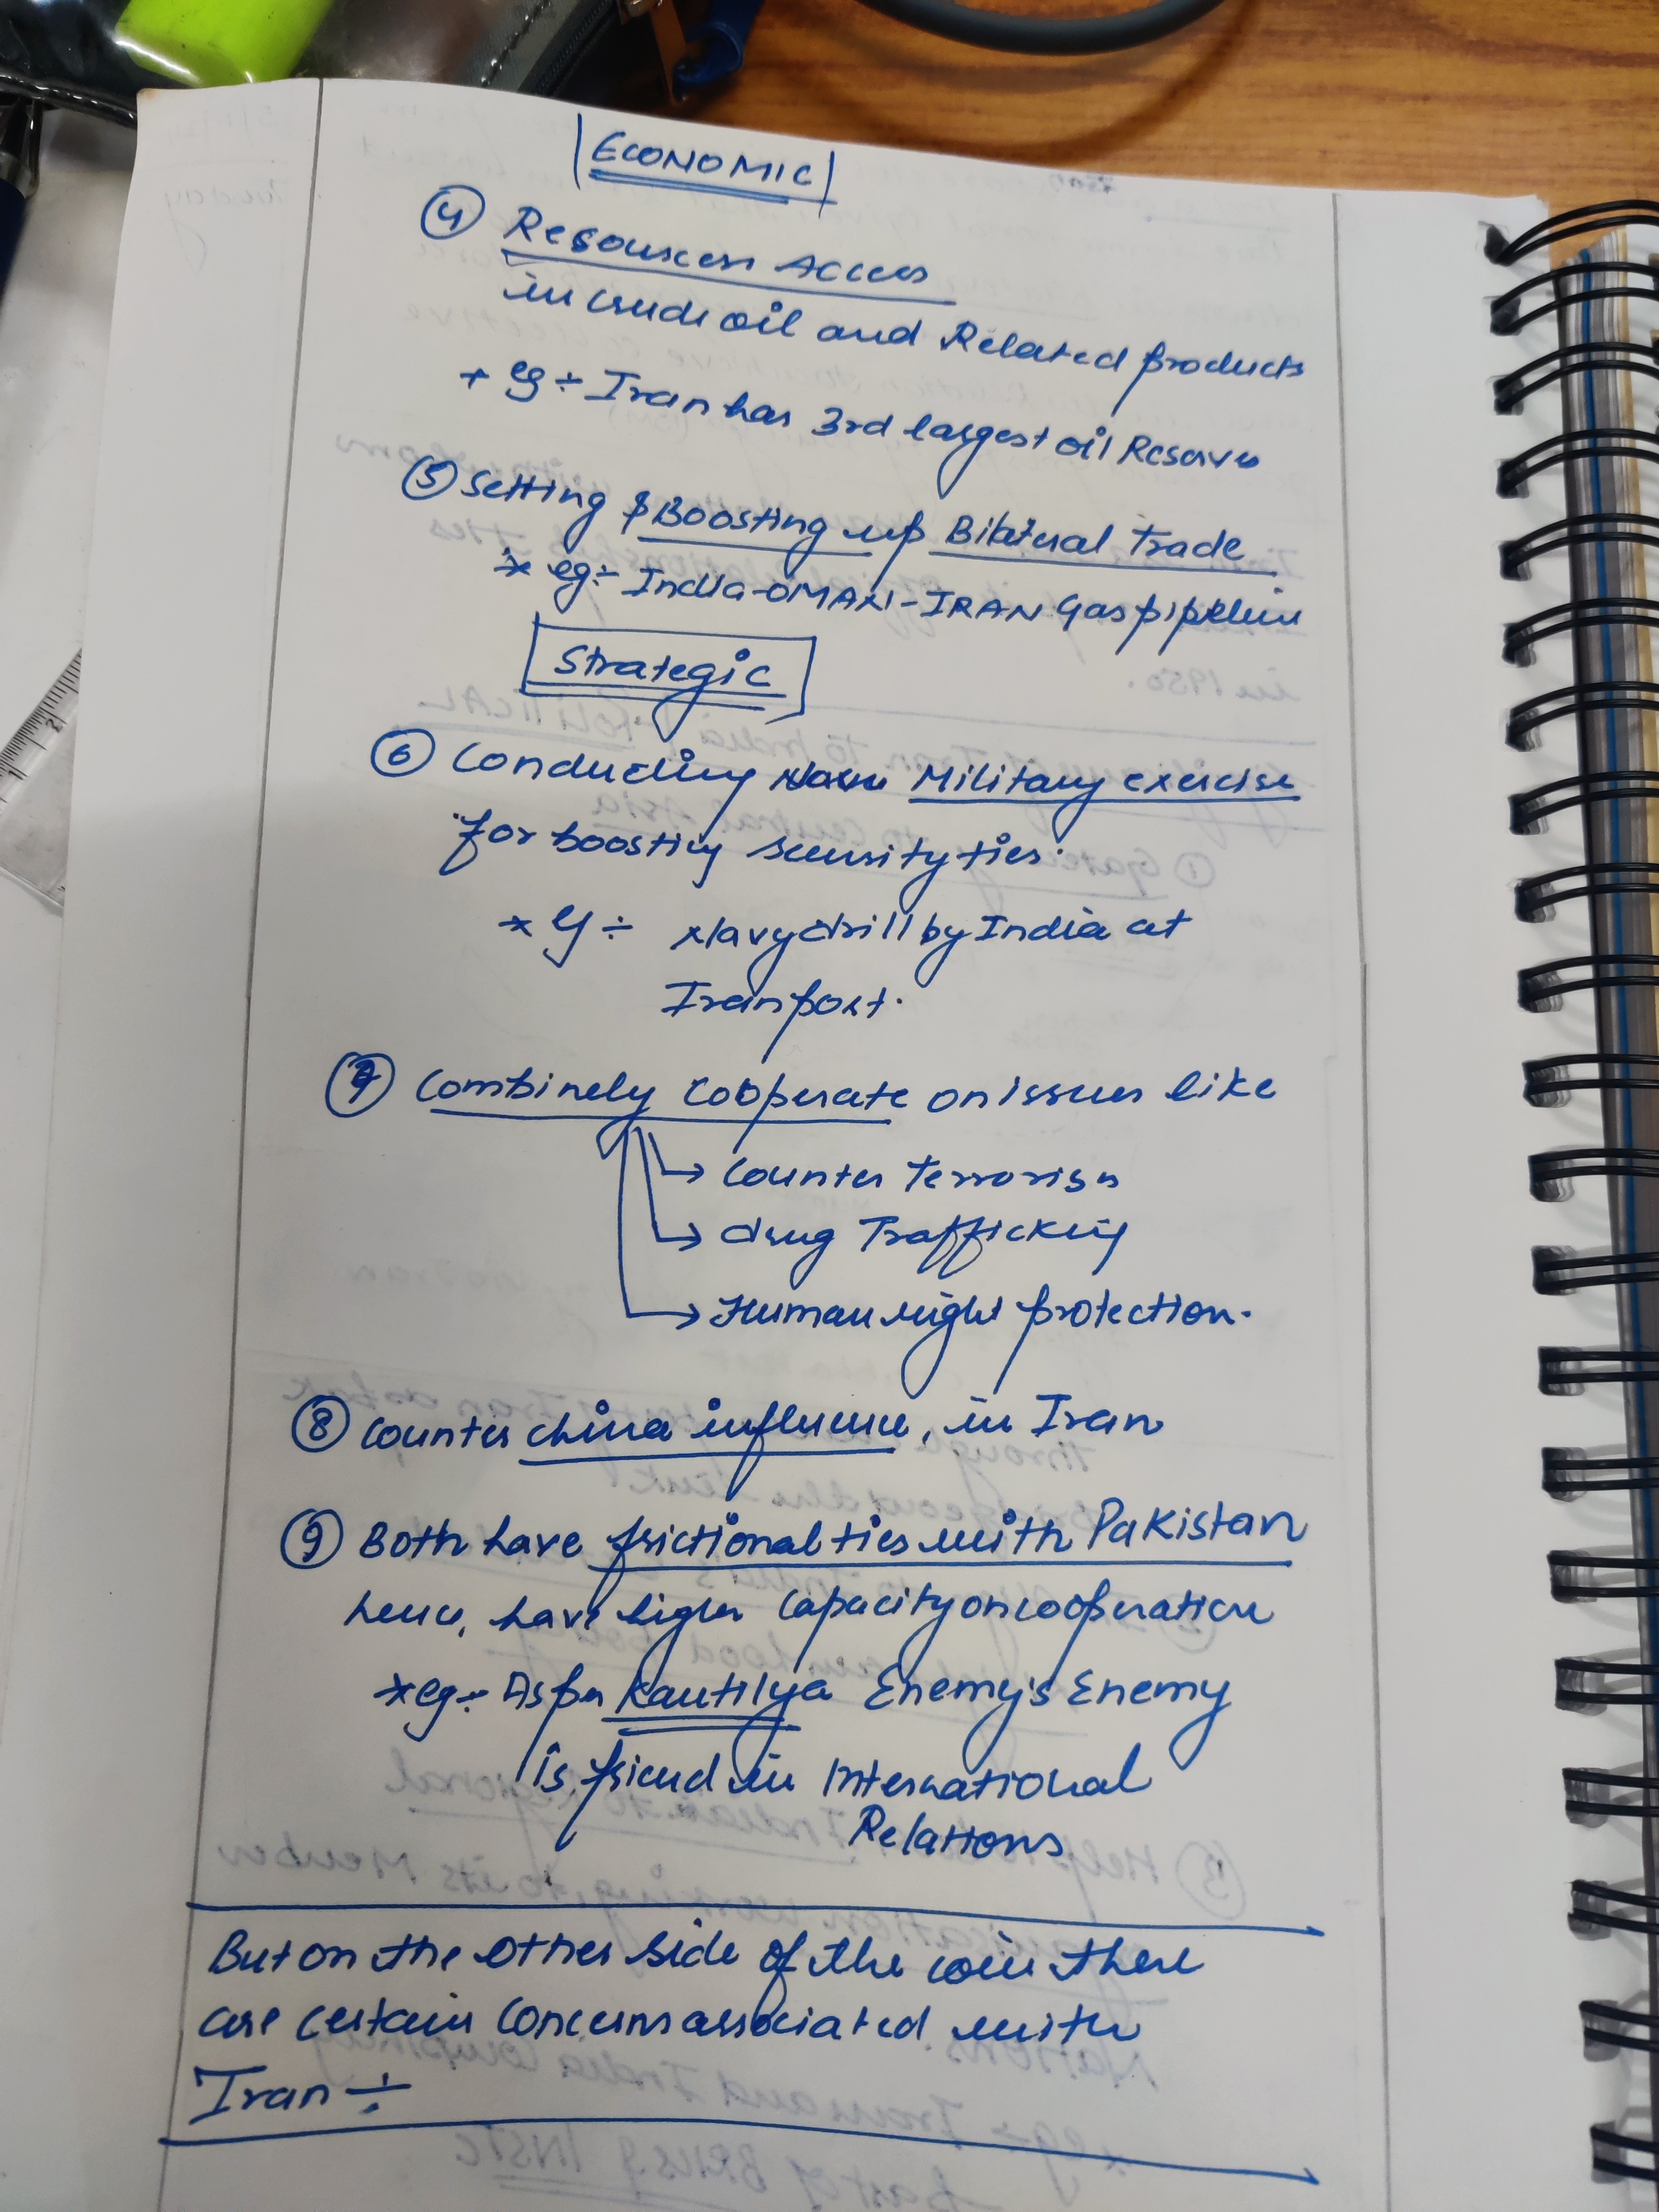 ECONOMIC
④ Resources Access
in crude oil and Related products
* eg ÷ Iran has 3rd largest oil Reserves
⑤ Setting & Boosting up Bilateral Trade
* eg ÷ India-OMAN-IRAN Gas pipeline
Strategic
⑥ Conducting Military exercise
for boosting security ties.
* eg ÷ Navy drill by India at
Iran port.
⑦ Combinely cooperate on issues like
→ Counter terrorism
→ drug Trafficking
→ Human right protection.
⑧ Counter china influence, in Iran
⑨ Both have frictional ties with Pakistan
hence, have higher capacity on cooperation
* eg ÷ As per Kautilya Enemy's Enemy
is friend in International
Relations
But on the other side of the coin there
are certain concerns associated with
Iran ÷